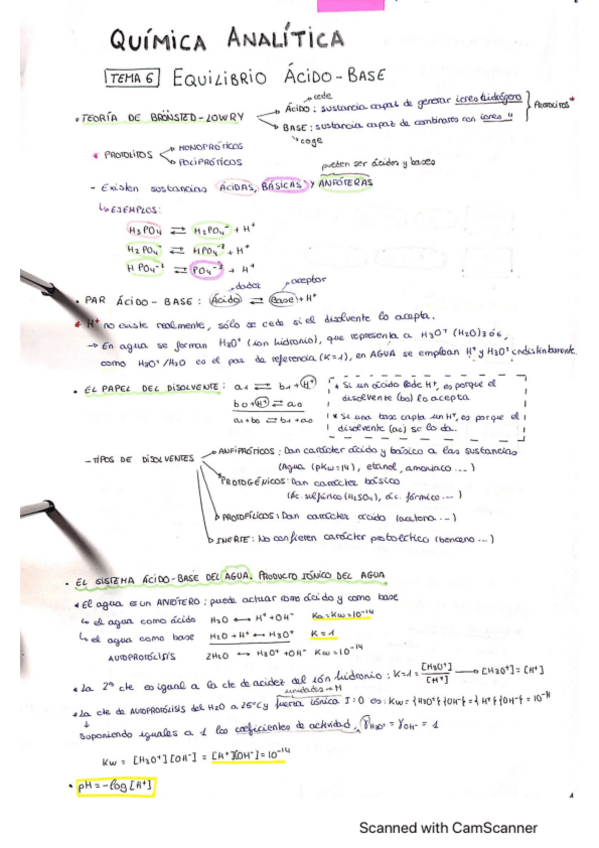 QUÍMICA ANALÍTICA
TEMA 6 EQUILIBRIO ÁCIDO-BASE
cede
• TEORÍA DE BRÖNSTED-LOWRY
ÁCIDO: sustancia capaz de generar iones hidrógeno
BASE: sustancia capaz de combinarse con iones "
PROTOLITOS *
coge
* PROTOLITOS
MONOPRÓTICOS
POLIPRÓTICOS
pueden ser ácidos y bases
- Existen sustancias ÁCIDAS, BÁSICAS y ANFÓTERAS
↳ EJEMPLOS:
H3PO4 ⇌ H2PO4⁻ + H⁺
H2PO4⁻ ⇌ HPO4⁻² + H⁺
HPO4⁻² ⇌ PO4⁻³ + H⁺
dador aceptor
• PAR ÁCIDO-BASE: Ácido ⇌ Base + H⁺
* H⁺ no existe realmente, sólo se cede si el disolvente lo acepta.
→ En agua se forman H3O⁺ (ion hidronio), que representa a H3O⁺ (H2O)3 ó 6,
como H3O⁺/H2O es el par de referencia (K=1), en AGUA se emplean H⁺ y H3O⁺ indistintamente.
• EL PAPEL DEL DISOLVENTE: a1 ⇌ b1 + H⁺
b0 + H⁺ ⇌ a0
a1 + b0 ⇌ b1 + a0
* Si un ácido cede H⁺, es porque el
disolvente (b0) lo acepta
* Si una base capta un H⁺, es porque el
disolvente (a0) se lo da.
- TIPOS DE DISOLVENTES
ANFIPRÓTICOS: Dan carácter ácido y básico a las sustancias
(Agua (pKw=14), etanol, amoniaco...)
PROTOGÉNICOS: Dan carácter básico
(Ác. sulfúrico (H2SO4), ác. fórmico...)
PROTOFÍLICOS: Dan carácter ácido (acetona...)
INERTE: No confieren carácter protolítico (benceno...)
• EL SISTEMA ÁCIDO-BASE DEL AGUA. PRODUCTO IÓNICO DEL AGUA
* El agua es un ANFÓTERO: puede actuar como ácido y como base
↳ el agua como ácido H2O ↔ H⁺ + OH⁻ Ka = Kw = 10⁻¹⁴
↳ el agua como base H2O + H⁺ ↔ H3O⁺ K=1
AUTOPROTÓLISIS 2H2O ↔ H3O⁺ + OH⁻ Kw = 10⁻¹⁴
* La 2ª cte es igual a la cte de acidez del ión hidronio: K=1= [H3O⁺]/[H⁺] → [H3O⁺] = [H⁺]
unidades → M
* La cte de AUTOPROTÓLISIS del H2O a 25°C y fuerza iónica I=0 es: Kw = {H3O⁺}{OH⁻} = {H⁺}{OH⁻} = 10⁻¹⁴
Suponiendo iguales a 1 los coeficientes de actividad, γH3O⁺ = γOH⁻ = 1
Kw = [H3O⁺][OH⁻] = [H⁺][OH⁻] = 10⁻¹⁴
• pH = -log [H⁺]
Scanned with CamScanner